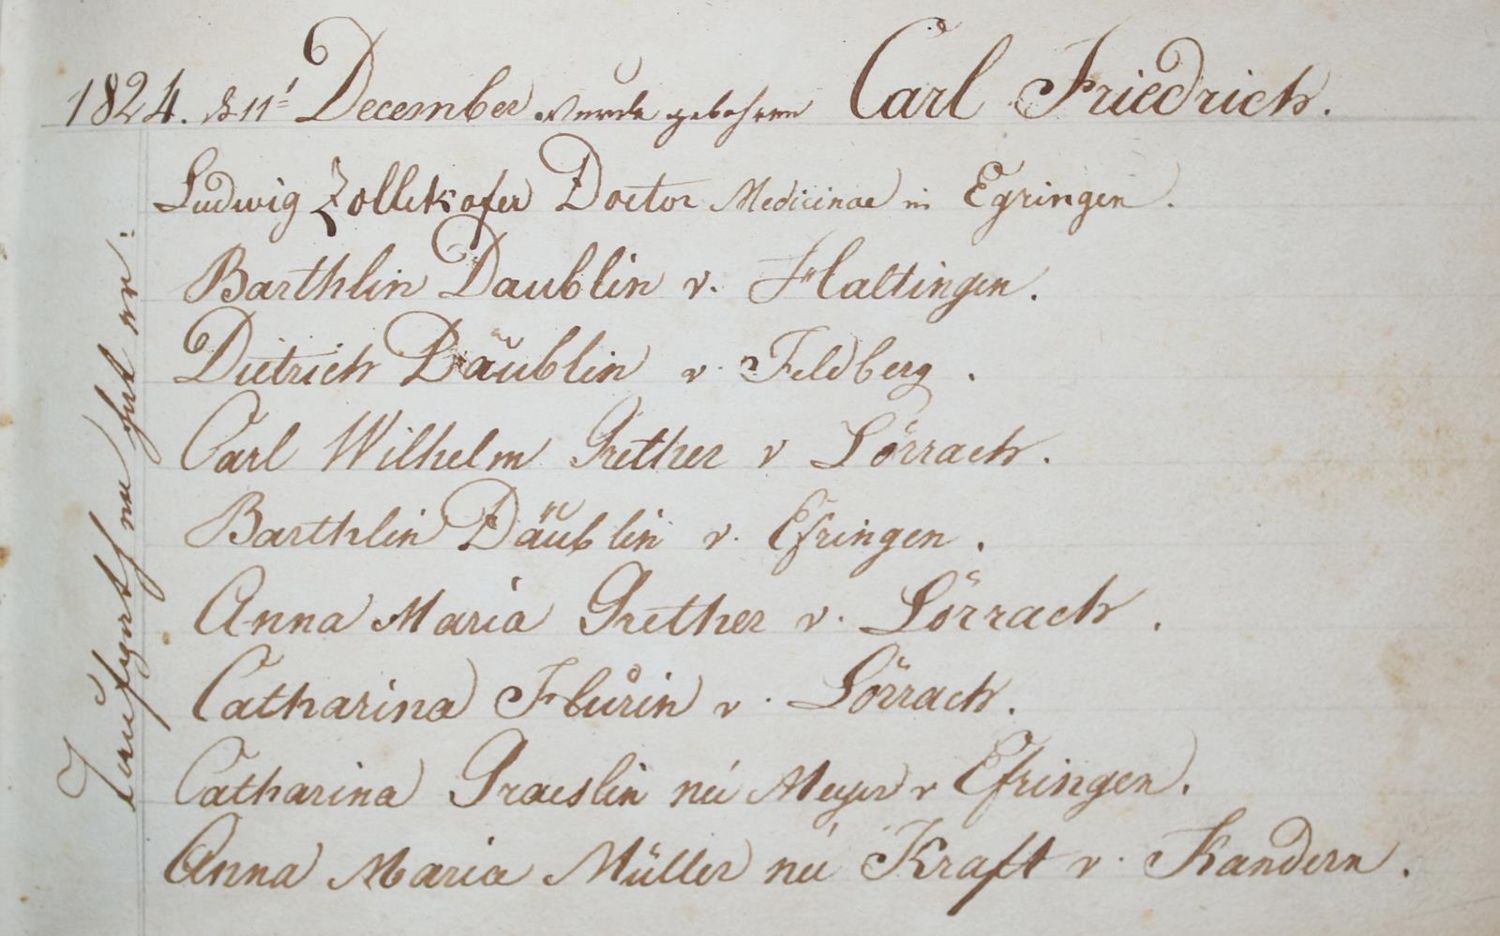 1824. d 11t December wurde gebohren Carl Friedrich.
Ludwig Zollikofer Doctor Medicinae in Egringen.
Barthlin Daublin v. Haltingen.
Dietrich Däublin v. Feldberg.
Carl Wilhelm Grether v Lörrach.
Barthlin Däublin v. Efringen.
Anna Maria Grether v. Lörrach.
Catharina Flurin v. Lörrach.
Catharina Graeslin née Meyer v Efringen.
Anna Maria Müller née Kraft v. Kandern.
Taufgöthe